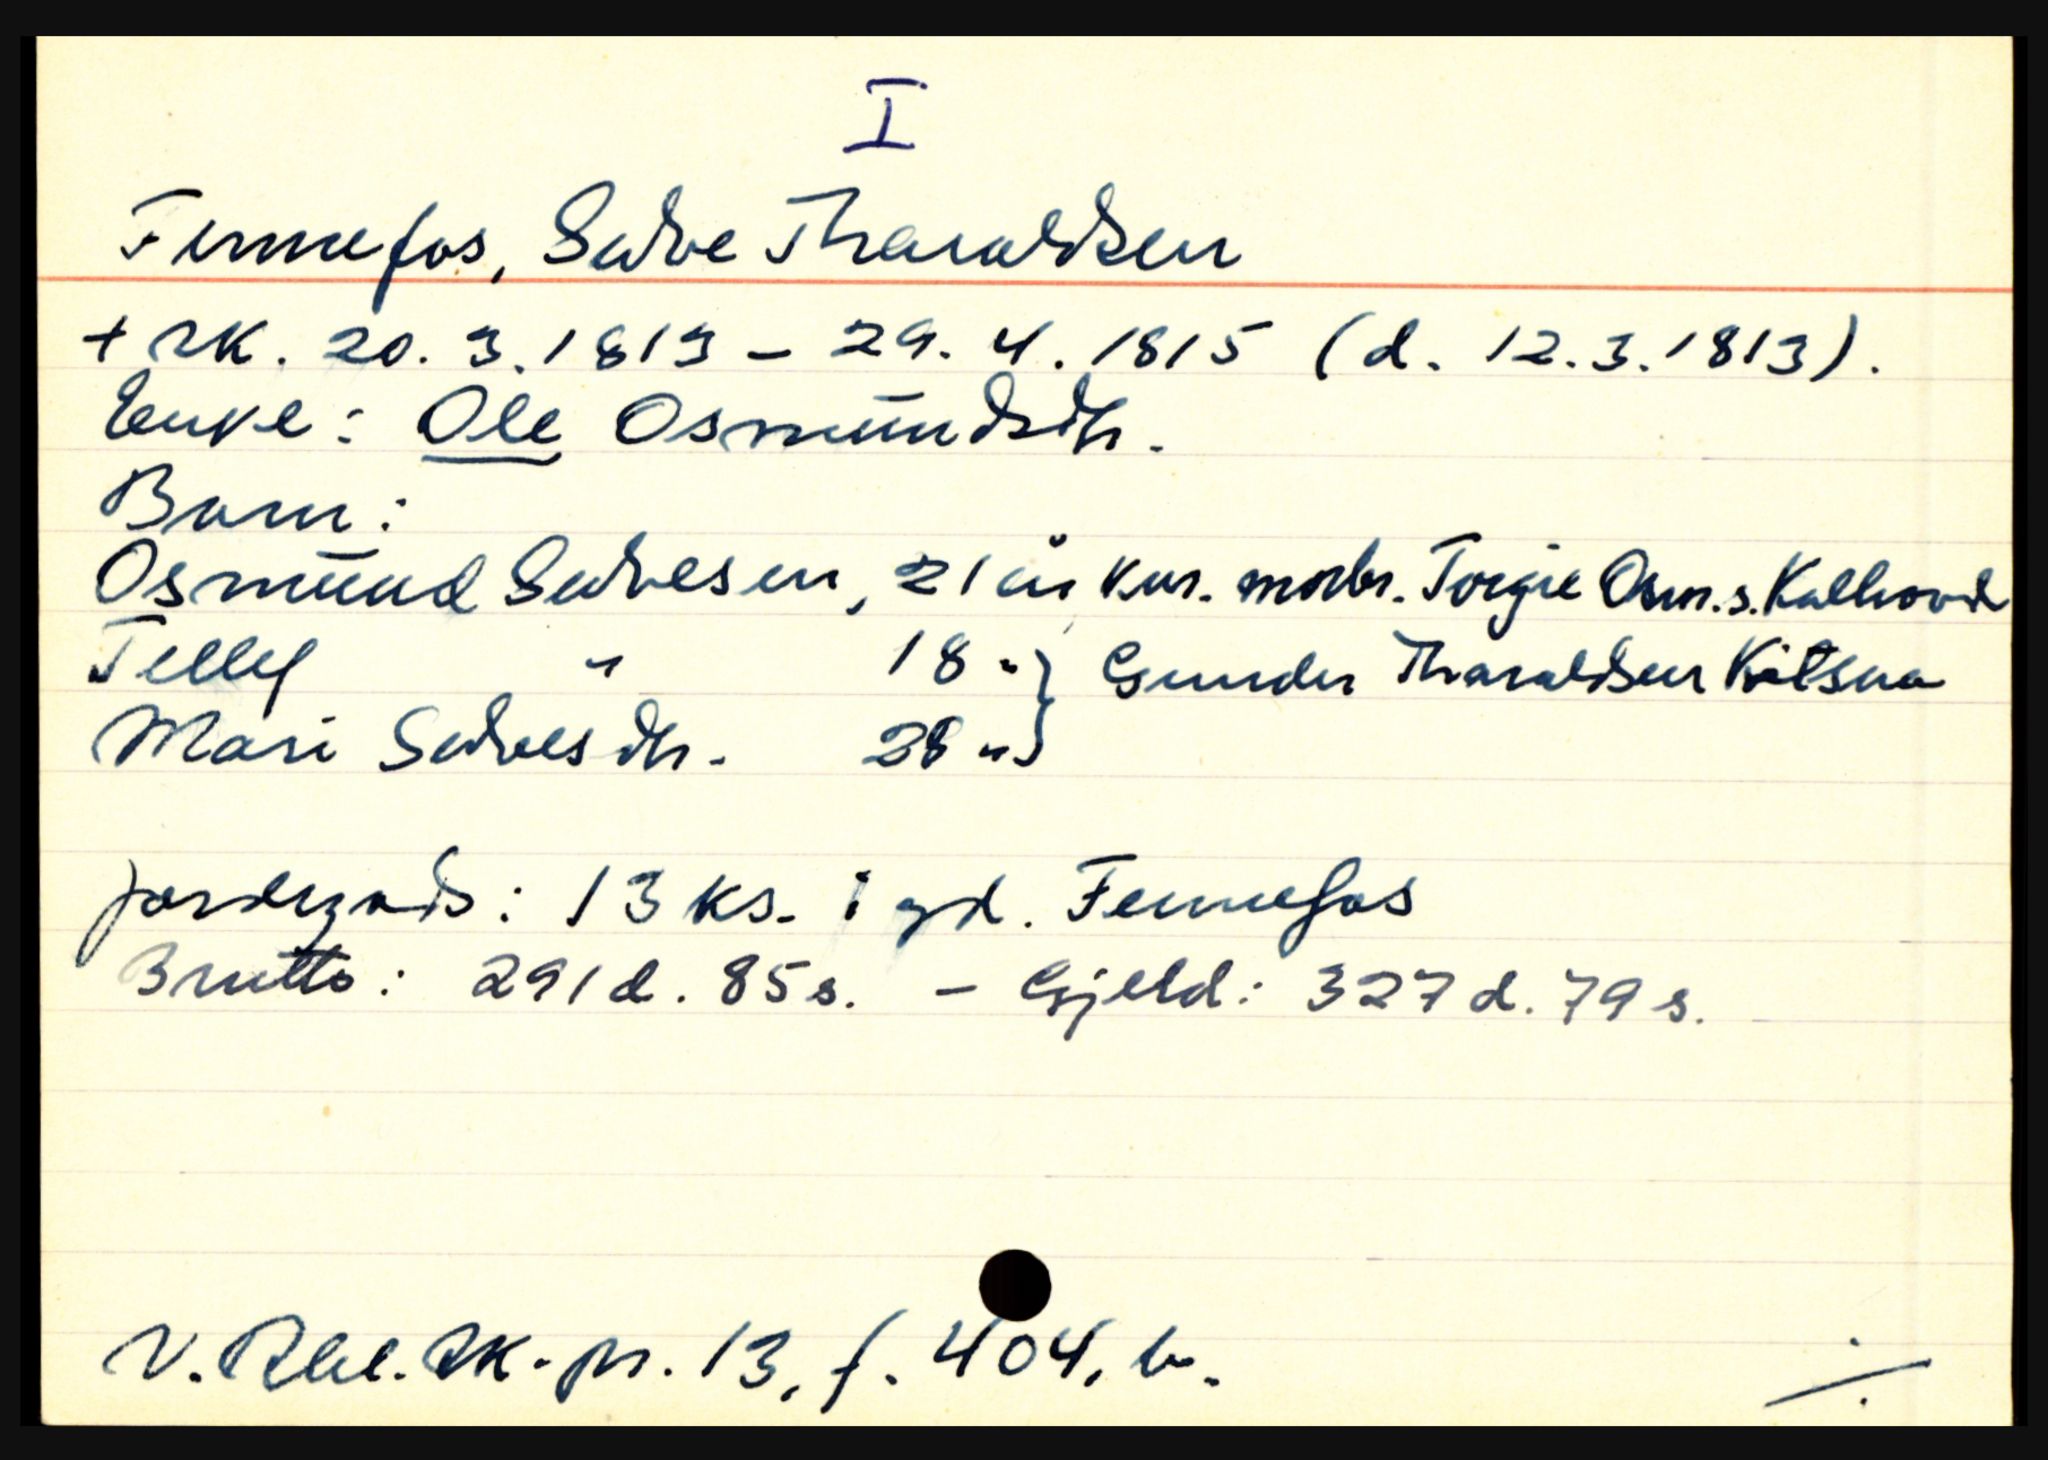 I
Fennefos, Salve Tharaldsen
+ sk. 20.3.1813 - 29.4.1815 (d. 12.3.1813).
Enke: Ole Osmundsdtr.
Barn:
Osmund Salvesen, 21 år kur. morbr. Torgie Osm.s. Kalhovd
Tellef " 18 " } Gunder Tharaldsen
Mari Salvesdtr. 28 " }
Jordegods: 13 ks. i gd. Fennefos
Brutto: 291 d. 85 s. - Gjeld: 327 d. 79 s.
V. Rbl. sk. pr. 13, f. 404, b.
./.